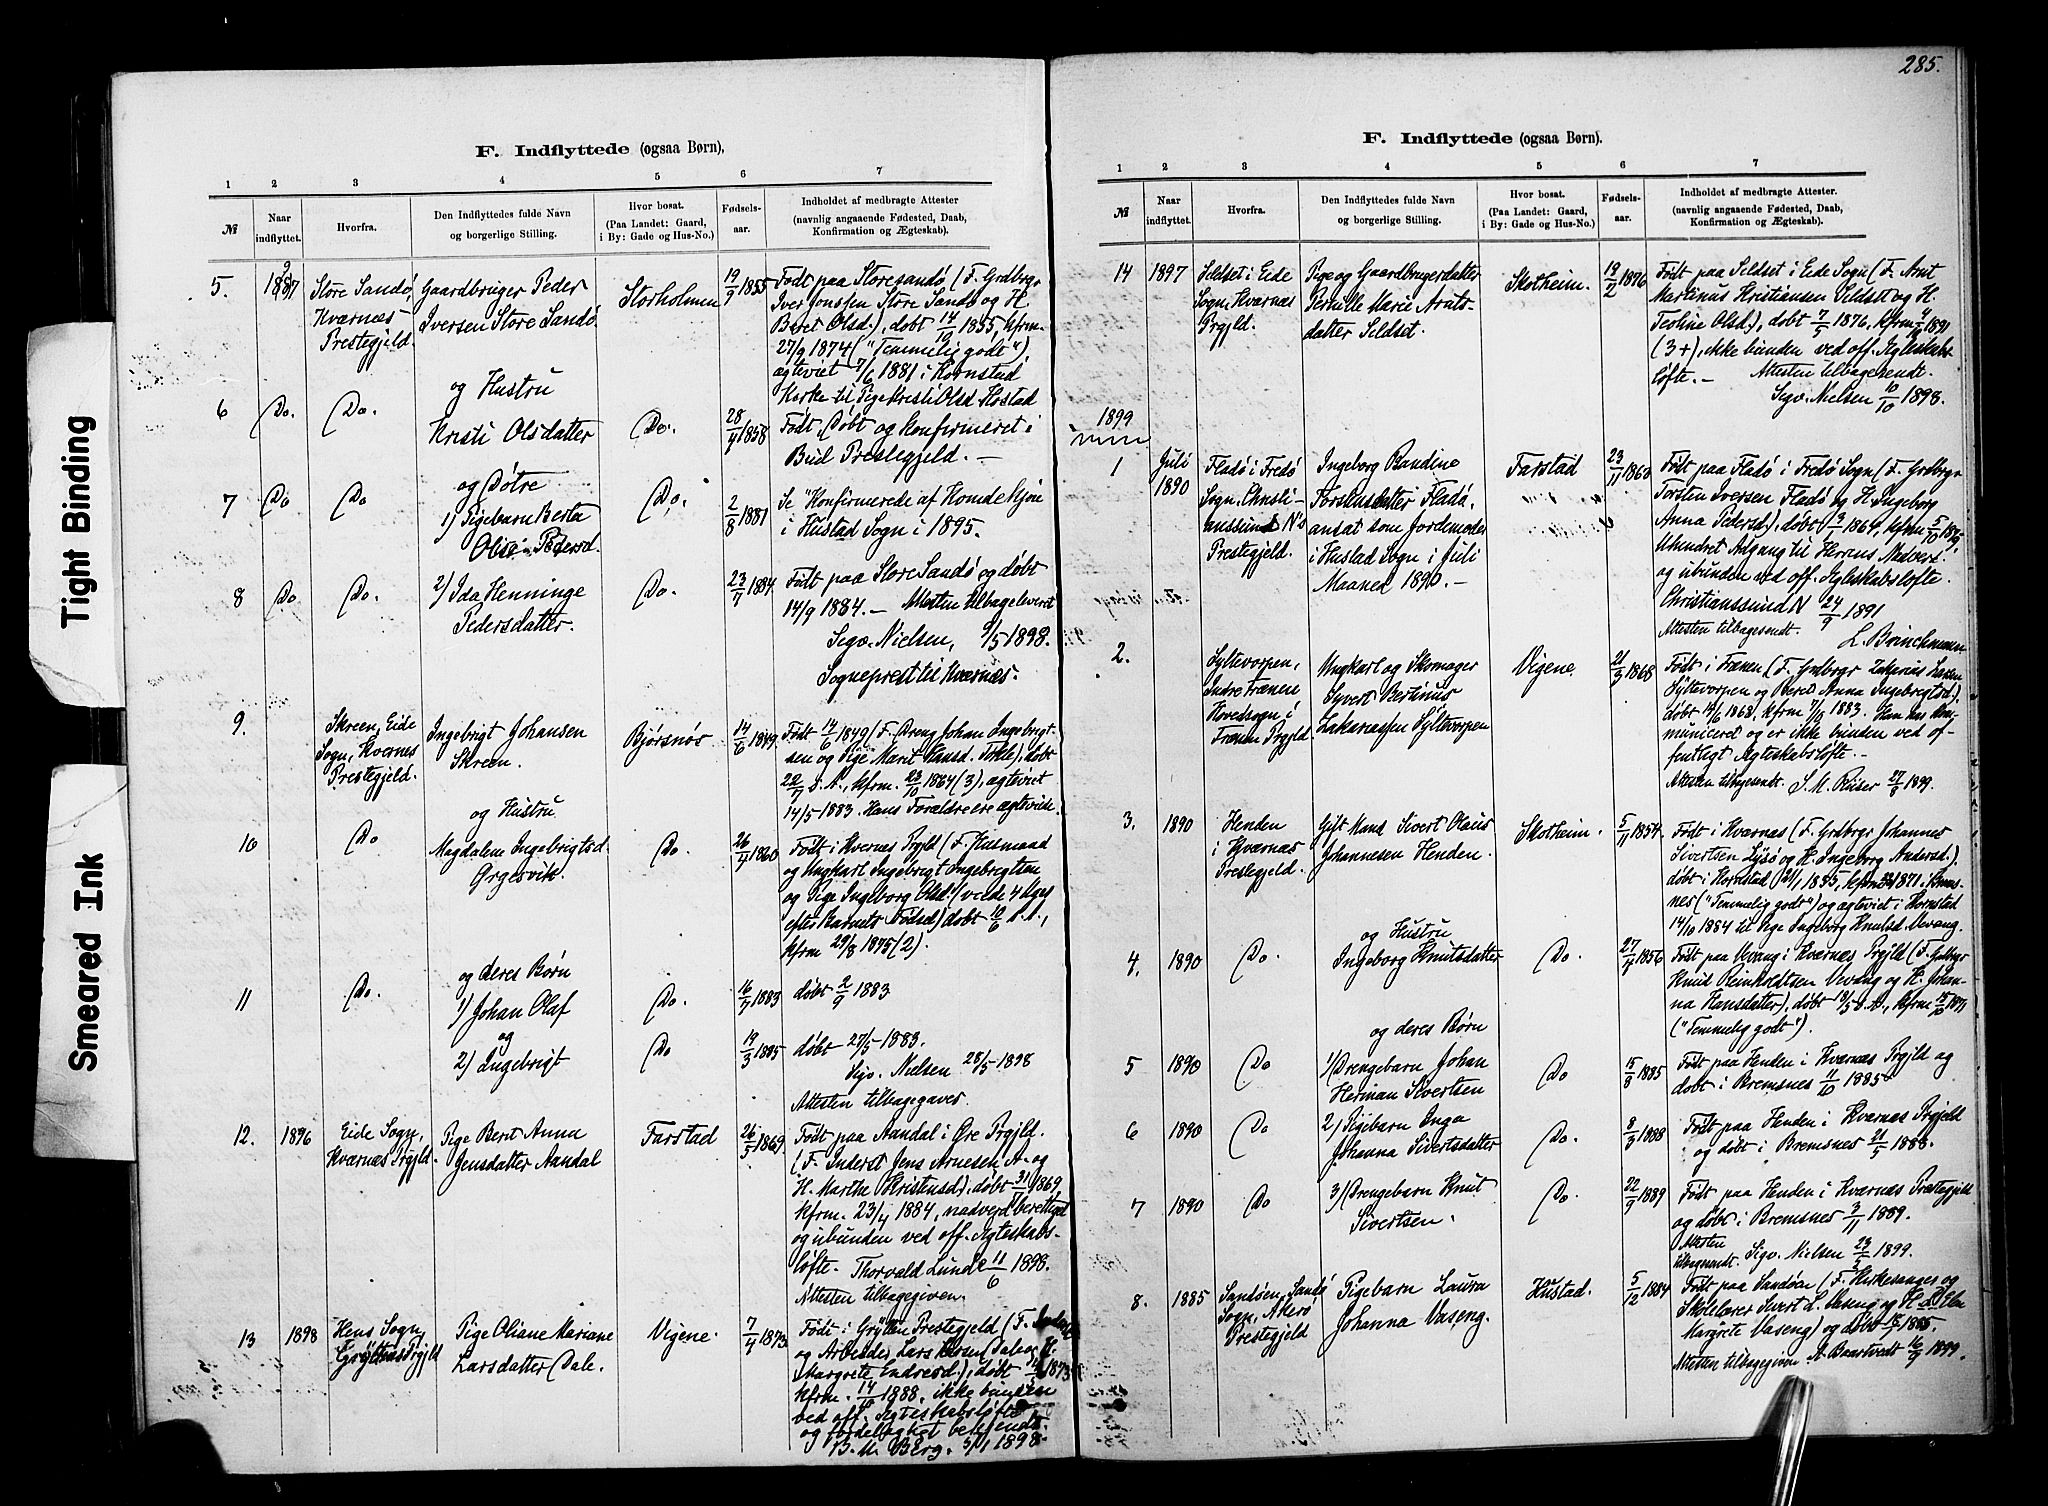 Tight Binding
Smeared Ink
F. Indflyttede (ogsaa Børn),
1 2 3 4 5 6 7
№
Naar indflyttet.
Hvorfra.
Den Indflyttedes fulde Navn
og borgerlige Stilling.
Hvor bosat.
(Paa Landet: Gaard,
i By: Gade og Hus-No.)
Fødsels-
aar.
Indholdet af medbragte Attester
(navnlig angaaende Fødested, Daab,
Konfirmation og Ægteskab).
5.
Store Sandø,
Kværnæs
Prestegjeld.
Gaardbruger Peder
Iversen Store Sandø
Storholmen
19/9 1855
Født paa Storesandø (F. Grdbrgr
Iver Jonssen Store Sandø og H.
Beret Olsd.), døbt 14/10 1855, kfrm.
27/9 1874 ("Temmelig godt"),
ægteviet 7/6 1881 i Kornstad
Kirke til Pige Kristi Olsd. Hostad
6 Do. Do.
og Hustru
Kristi Olsdatter
Do.
28/4 1858
Født, Døbt og Konfirmeret i
Bud Prestegjeld. —
7 Do Do
og Døtre
1) Pigebarn Berta
Olse Pedersd.
Do.
2/8 1881
Se "Konfirmerede af Kvindekjøn
i Hustad Sogn i 1895.
8 Do Do.
2) Ida Henninge
Pedersdatter.
Do.
23/7 1884
Født paa Store Sandø og døbt
14/9 1884. — Attesten tilbageleveret
Sigv. Nielsen, 6/5 1898.
Sogneprest til Kværnæs.
9.
Skreen, Eide
Sogn, Kvernes
Prestegjeld.
Ingebrigt Johansen
Skreen.
Bjørsnøs
14/6 1849
Født 14/6 1849 (F. Dreng Johan Ingebrigt-
sen og Pige Marit Hansd. Tokle), døbt
22/7 s. A., kfrm. 23/10 1864 (3), ægteviet
14/5 1883. Hans Forældre ere ægteviede
10 Do
og Hustru
Magdalene Ingebrigtsd.
Ørgesvik.
Do.
26/4 1860
Født i Kvernes Prgld (F. Husmand
og Ungkarl Ingebrigt Ingebrigtsen
og Pige Ingeborg Olsd. (veide 4 Uger
efter Barnets Fødsel) døbt 10/6 s. A.,
kfrm 29/8 1875 (2).
11 Do.
og deres Børn
1) Johan Olaf
Do.
16/7 1883
døbt 2/9 1883
og
2) Ingebrigt
Do
19/3 1885
døbt 27/5 1888.
Sigv. Nielsen 28/5 1898
Attesten tilbagegaves.
12. 1896
Eide Sogn,
Kværnæs Prgjld.
Pige Berit Anna
Jensdatter Aandal
Farstad
26/5 1869
Født paa Aandal i Øre Prgjld.
(F. Inderst Jens Arnesen A. og
H. Marthe Kristensd.), døbt 31/ 1869
kfrm. 23/4 1884, nadverdberettiget
og ubunden ved off. Ægteskabs-
løfte. Thorvald Lund 11/6 1898.
Attesten tilbagegiven.
13 1898
Hens Sogn,
Gryttens Prgjld
Pige Oliane Mariane
Larsdatter Dale.
Vigene.
7/4 1873
Født i Grytten Prestegjeld (F.
og Arbeider Lars Dale og H.
Margrete Endresd.), døbt 1873
kfrm. 14/10 1888, ikke bunden
ved off. Ægteskabsløfte
og fordelagtigt bekjendt.
B. M. Berg. 3/1 1898.
285.
F. Indflyttede (ogsaa Børn).
1 2 3 4 5 6 7
№
Naar indflyttet.
Hvorfra.
Den Indflyttedes fulde Navn
og borgerlige Stilling.
Hvor bosat.
(Paa Landet: Gaard,
i By: Gade og Hus-No.)
Fødsels-
aar.
Indholdet af medbragte Attester.
(navnlig angaaende Fødested, Daab,
Konfirmation og Ægteskab).
14 1897
Seldset i Eide
Sogn, Kværnæs
Prgjld.
Pige og Gaardbrugerdatter
Pernille Marie Arnts-
datter Seldset.
Skotheim.
19/2 1876
Født paa Seldset i Eide Sogn (F. Arnt
Martinus Kristiansen Seldset og H.
Teoline Olsd.), døbt 7/5 1876, kfrm 4/ 1891
(3+), ikke bunden ved off. Ægteskabs-
løfte. — Attesten tilbagesendt.
Sigv. Nielsen 10/10 1898.
1899
1 Juli
1890
Fladø i Fredø
Sogn, Christi-
anssund N's
Prestegjeld.
Ingeborg Bandine
Torstensdatter Fladø,
ansat som Jordemoder
i Hustad Sogn i Juli
Maaned 1890. —
Farstad
23/11 1860
Født paa Fladø i Fredø Sogn (F. Grdbrgr
Torsten Iversen Fladø og H. Ingeborg
Anna Pedersd.), døbt 1861, kfrm 5/10 1875,
Uhindret Adgang til Herrens Nadver
og ubunden ved off. Ægteskabsløfte.
Christianssund N 24/9 1891
Attesten tilbagesendt. L. Brinchmann
2.
Syltevorpen,
Indre Frænen
Hovedsogn i
Frænen Prgjld
Ungkarl og Skomager
Syvert Bertinus
Zakariassen Syltevorpen
Vigene.
21/3 1868
Født i Frænen (F. Grdbrgr Zakarias Larsen
Syltevorpen og Beret Anna Ingebrigtsd.),
døbt 14/6 1868, kfrm 7/10 1883. Han har kom-
municeret og er ikke bunden ved of-
fentligt Ægteskabsløfte. —
Attesten tilbagesendt. S. M. Riiser 27/8 1899.
3. 1890
Henden
i Kværnæs
Prestegjeld.
Gift Mand Sivert Olaus
Johannesen Henden.
Skotheim.
5/11 1854
Født i Kværnæs (F. Grdbrgr Johannes
Sivertsen Lysø og H. Ingeborg Andersd.).
døbt i Kornstad 21/1 1855, kfrm 1871 i Brems-
nes ("Temmelig godt") og ægteviet i Kornstad
14/10 1884 til Pige Ingeborg Knutsd. Vevang.
4. 1890 Do.
og Hustru
Ingeborg Knutsdatter
Do.
27/4 1856
Født paa Vevang i Kværnæs Prgjld (F. Grdbrgr
Knud Reinholdtsen Vevang og H. Johan-
na Hansdatter), døbt 18/5 s. A., kfrm 15/10 1871
("Temmelig godt").
5 1890 Do
og deres Børn
1) Drengebarn Johan
Herman Sivertsen
Do
15/8 1885
Født paa Henden i Kværnæs Prgjld og
døbt i Bremsnes 11/10 1885
6 1890 Do
2) Pigebarn Inga
Johanna Sivertsdatter
Do.
8/3 1888
Født paa Henden i Kværnæs Prgjeld
og døbt i Bremsnes 21/5 1888.
7 1890 Do
3) Drengebarn Knut
Sivertsen.
Do.
22/9 1889
Født paa Henden i Kværnæs Præstegjeld
og døbt i Bremsnes 3/11 1889.
Attesten
tilbagesendt. Sigv. Nielsen 23/3 1899.
8. 1885
Sandøen, Sandø
Sogn, Akerø
Prestegjeld
Pigebarn Laura
Johanna Vaseng.
Hustad.
5/12 1884
Født paa Sandøen (F. Kirkesanger og
Skolelærer Sivert L. Vaseng og H.
Margrete Vaseng) og døbt 1885.
Attesten tilbagegiven A. Baartvedt 16/9 1899.